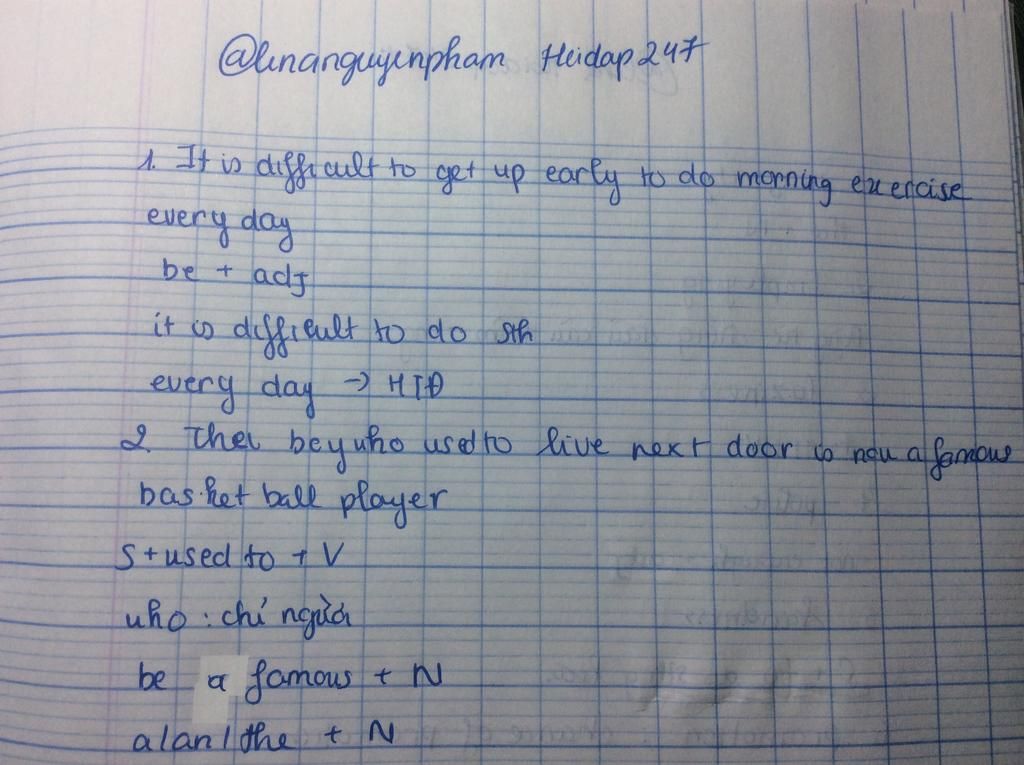 @linanguyenpham Hoidap247
1. It is difficult to get up early to do morning exercise
every day
be + adj
it is difficult to do sth
every day -> HTĐ
2 The boy who used to live next door is now a famous
basketball player
S + used to + V
who : chỉ người
be a famous + N
a/an/the + N